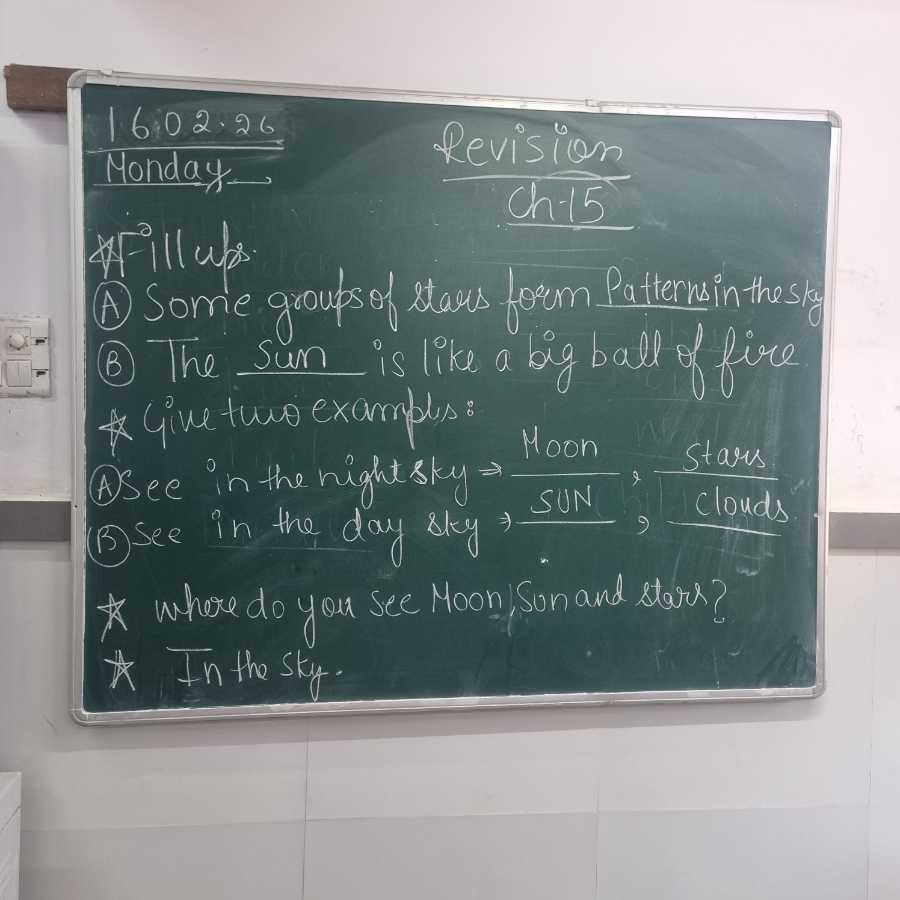 16.02.26
Monday
Revision
Ch-15
Fill ups.
(A) Some groups of stars form Patterns in the sky
(B) The Sun is like a big ball of fire
Give two examples:
(A) See in the night sky → Moon, Stars
(B) See in the day sky → SUN, Clouds.
where do you see Moon, Sun and stars?
In the sky.